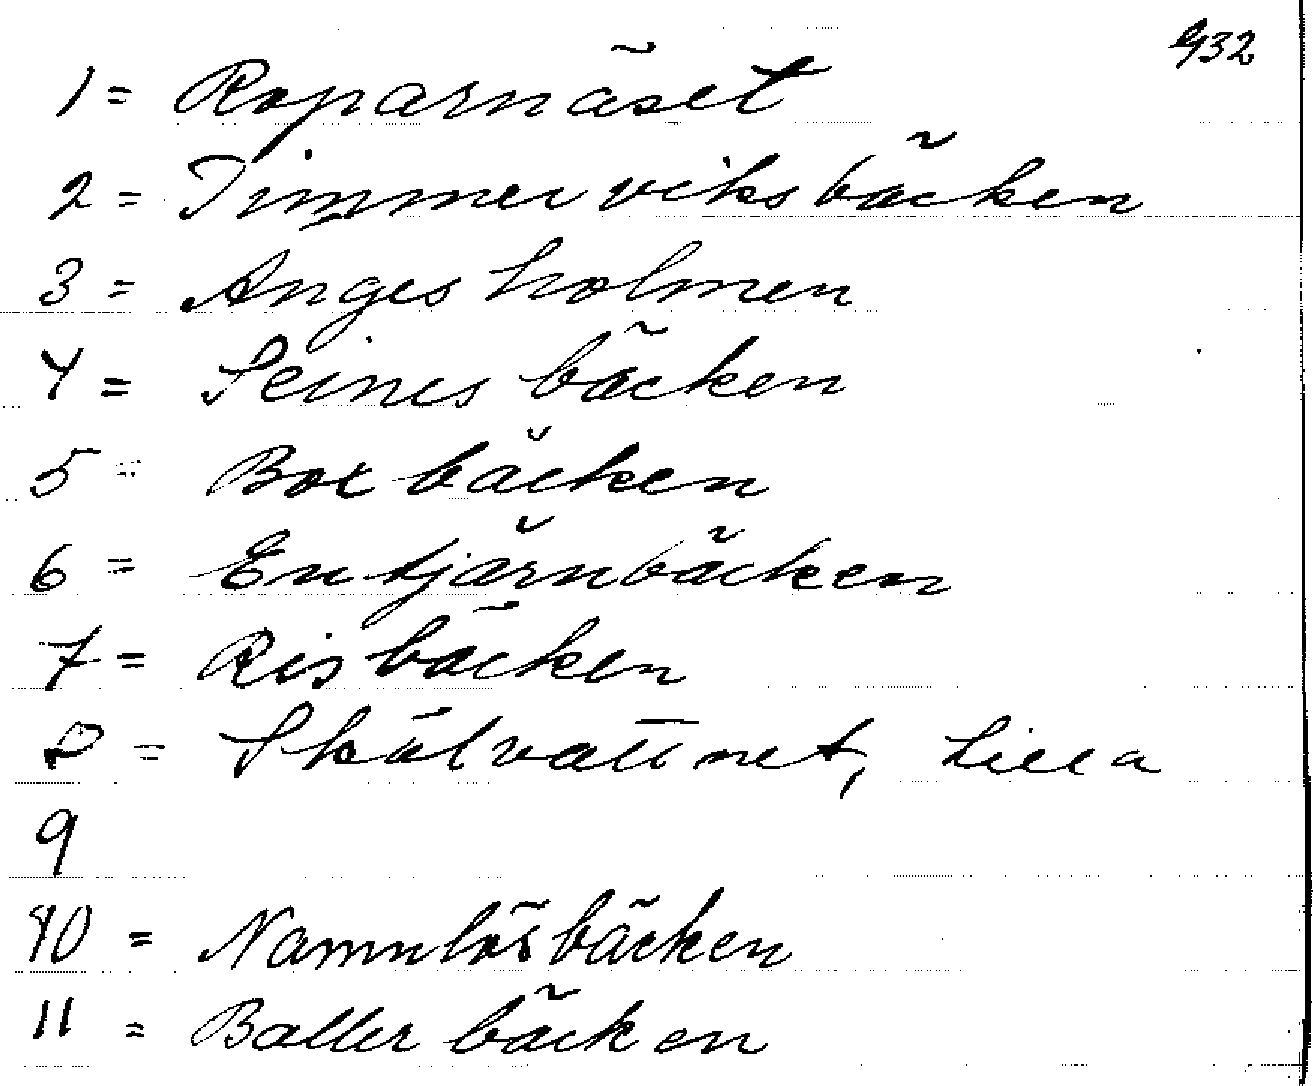 932
1 = Roparnäset
2 = Timmerviksbäcken
3 = Angesholmen
4 = Seines bäcken
5 = Box bäcken
6 = Entjärnbäcken
7 = Risbäcken
8 = Skålvattnet, Lilla
9
10 = Namnlösbäcken
11 = Baller bäcken